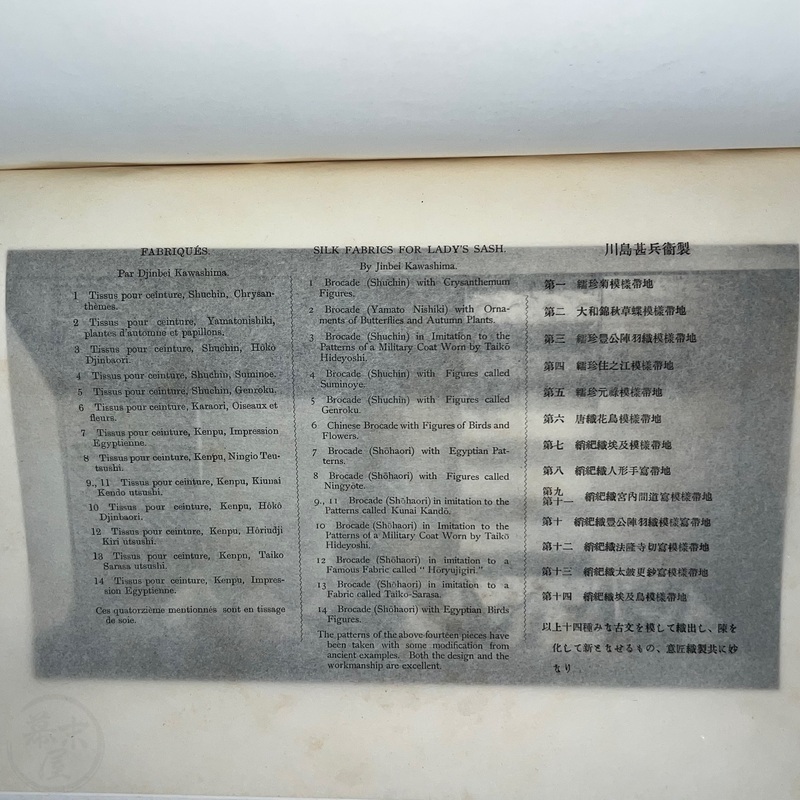 FABRIQUÉS.
Par Djinbei Kawashima.
1 Tissus pour ceinture, Shuchin, Chrysan-
thèmes.
2 Tissus pour ceinture, Yamatonishiki,
plantes d'automne et papillons.
3 Tissus pour ceinture, Shuchin, Hôkô
Djinbaori.
4 Tissus pour ceinture, Shuchin, Suminoe.
5 Tissus pour ceinture, Shuchin, Genroku.
6 Tissus pour ceinture, Karaori, Oiseaux et
fleurs.
7 Tissus pour ceinture, Kenpu, Impression
Egyptienne.
8 Tissus pour ceinture, Kenpu, Ningio Teu-
tsushi.
9., 11 Tissus pour ceinture, Kenpu, Kiunai
Kendo utsushi.
10 Tissus pour ceinture, Kenpu, Hôkô
Djinbaori.
12 Tissus pour ceinture, Kenpu, Hôriudji
Kiri utsushi.
13 Tissus pour ceinture, Kenpu, Taiko
Sarasa utsushi.
14 Tissus pour ceinture, Kenpu, Impres-
sion Egyptienne.
Ces quatorzième mentionnés sont en tissage
de soie.
SILK FABRICS FOR LADY'S SASH.
By Jinbei Kawashima.
1 Brocade (Shuchin) with Crysanthemum
Figures.
2 Brocade (Yamato Nishiki) with Orna-
ments of Butterflies and Autumn Plants.
3 Brocade (Shuchin) in Imitation to the
Patterns of a Military Coat Worn by Taikō
Hideyoshi.
4 Brocade (Shuchin) with Figures called
Suminoye.
5 Brocade (Shuchin) with Figures called
Genroku.
6 Chinese Brocade with Figures of Birds and
Flowers.
7 Brocade (Shōhaori) with Egyptian Pat-
terns.
8 Brocade (Shōhaori) with Figures called
Ningyōte.
9., 11 Brocade (Shōhaori) in imitation to the
Patterns called Kunai Kandō.
10 Brocade (Shōhaori) in Imitation to the
Patterns of a Military Coat Worn by Taikō
Hideyoshi.
12 Brocade (Shōhaori) in imitation to a
Famous Fabric called "Horyujigiri."
13 Brocade (Shōhaori) in imitation to a
Fabric called Taiko-Sarasa.
14 Brocade (Shōhaori) with Egyptian Birds
Figures.
The patterns of the above fourteen pieces have
been taken with some modification from
ancient examples. Both the design and the
workmanship are excellent.
川島甚兵衞製
第一 繻珍菊模樣帶地
第二 大和錦秋草蝶模樣帶地
第三 繻珍豐公陣羽織模樣帶地
第四 繻珍住之江模樣帶地
第五 繻珍元祿模樣帶地
第六 唐織花鳥模樣帶地
第七 絹紦織埃及模樣帶地
第八 絹紦織人形手寫帶地
第九
第十一 絹紦織宮內間道寫模樣帶地
第十 絹紦織豐公陣羽織模樣寫帶地
第十二 絹紦織法隆寺切寫模樣帶地
第十三 絹紦織太鼓更紗寫模樣帶地
第十四 絹紦織埃及鳥模樣帶地
以上十四種みな古文を模して織出し、陳を
化して新となせるもの、意匠織製共に妙
なり